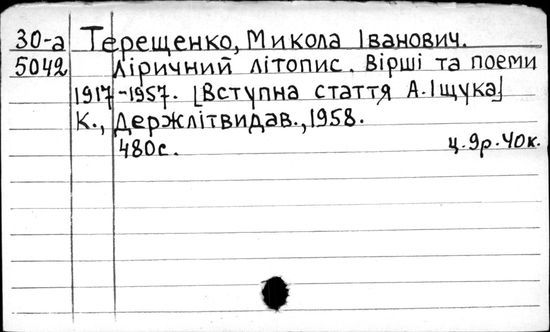 30-а Терещенко, Микола Іванович.
5042 Ліричний літопис. Вірші та поеми
1917-1957. [Вступна стаття А.Іщука]
К., Держлітвидав., 1958.
480с. ц.9р.40к.